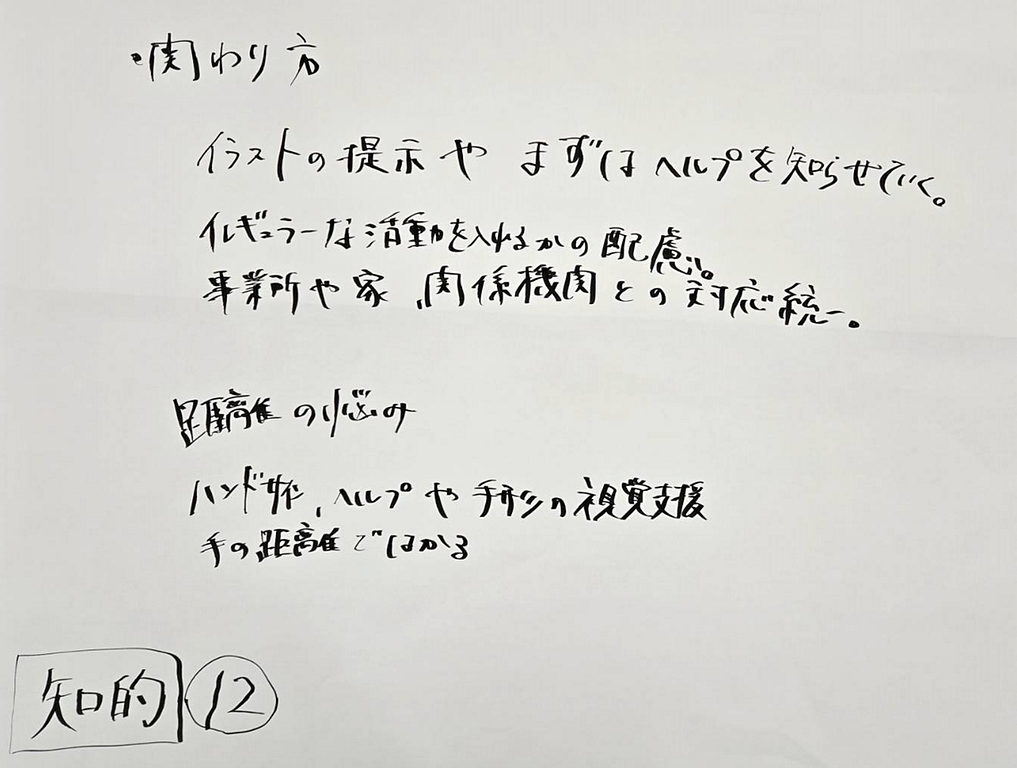 ・関わり方
イラストの提示や まずは ヘルプを知らせていく。
イレギュラーな活動を入れるかの配慮。
事業所や家、関係機関との対応統一。
距離の悩み
ハンドサイン、ヘルプや手形の視覚支援
手の距離ではかる
知的 ⑫